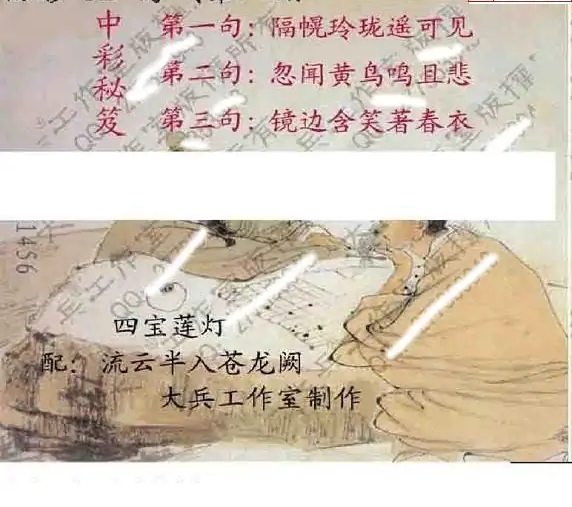 中彩秘笈
第一句：隔幌玲珑遥可见
第二句：忽闻黄鸟鸣且悲
第三句：镜边含笑著春衣
1456
四宝莲灯
配：流云半入苍龙阙
大兵工作室制作